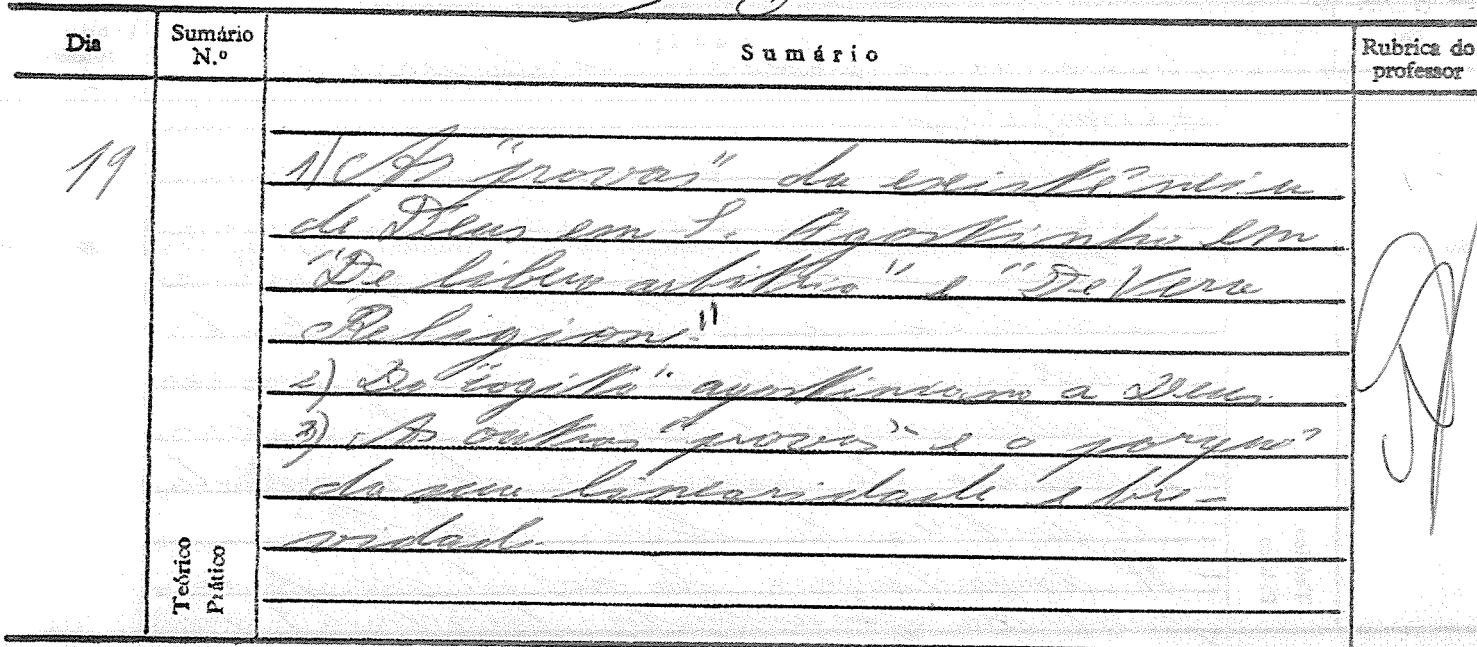 Dia
Sumário N.º
Sumário
Rubrica do professor
19
1) As "provas" da existência
de Deus em S. Agostinho em
"De libero arbitrio" e "De Vera
Religione"
2) Do "cogito" agostiniano a Deus
3) As outras "provas" e o porquê
da sua linearidade e bre-
vidade.
Teórico
Prático